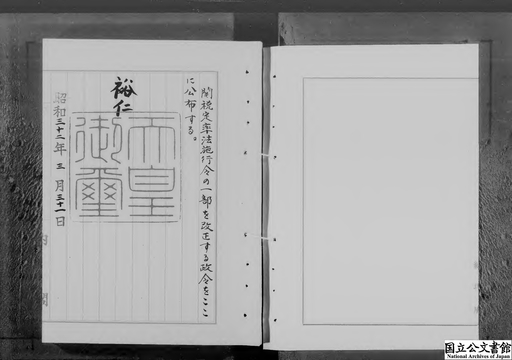 関税定率法施行令の一部を改正する政令をここ
に公布する。
裕仁
天皇
御璽
昭和三十二年三月三十一日
内閣
国立公文書館
National Archives of Japan